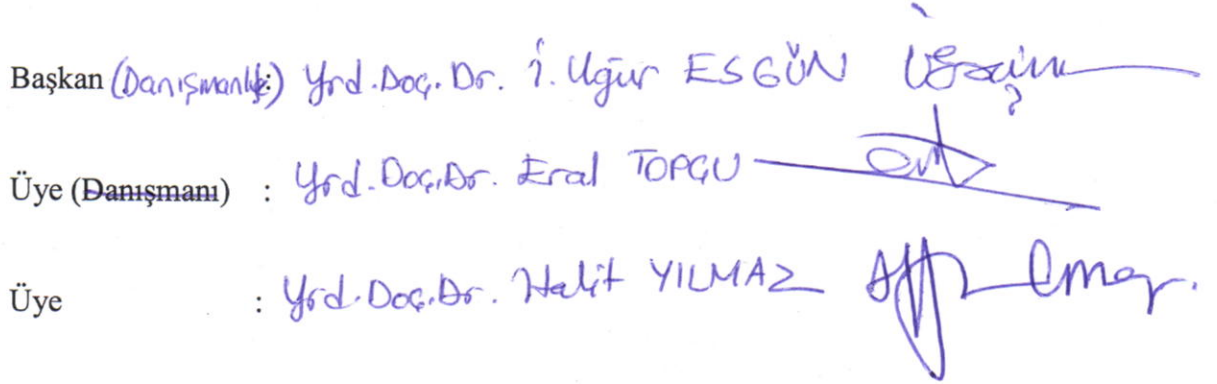 Başkan (Danışmanlık:) Yrd.Doç.Dr. İ. Uğur ESGÜN
Üye (Danışmanı) : Yrd.Doç.Dr. Eral TOPÇU
Üye : Yrd.Doç.Dr. Halit YILMAZ